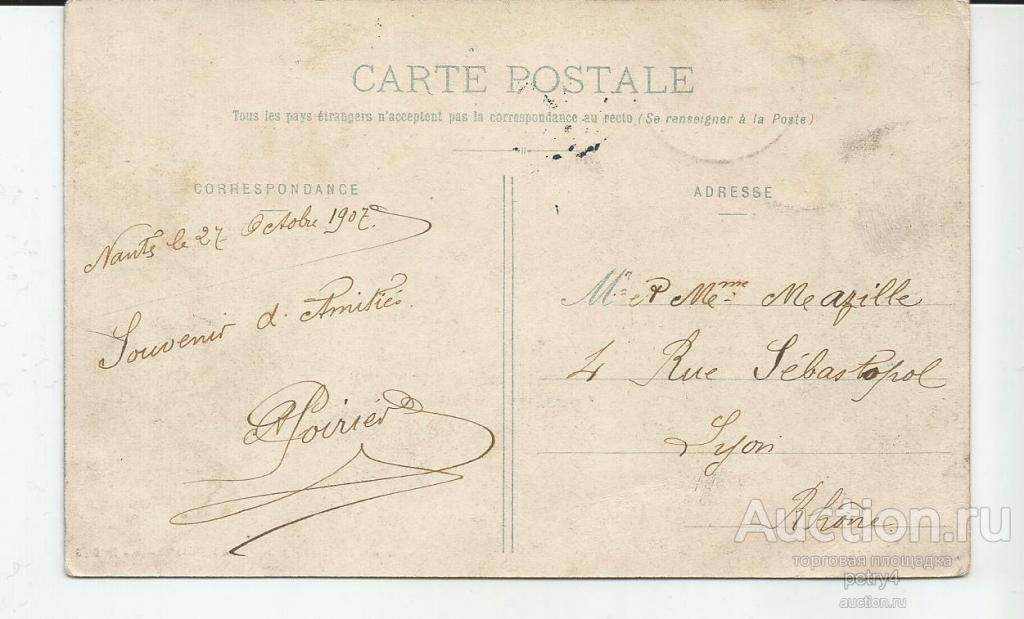 CARTE POSTALE
Tous les pays étrangers n'acceptent pas la correspondance au recto (Se renseigner à la Poste)
CORRESPONDANCE
Nantes le 27 Octobre 1907.
Souvenir d'Amitiés.
Poirier
ADRESSE
Mr & Mme
4 Rue Sébastopol
Lyon
Rhône
Auction.ru
торговая площадка
petry4
auction.ru